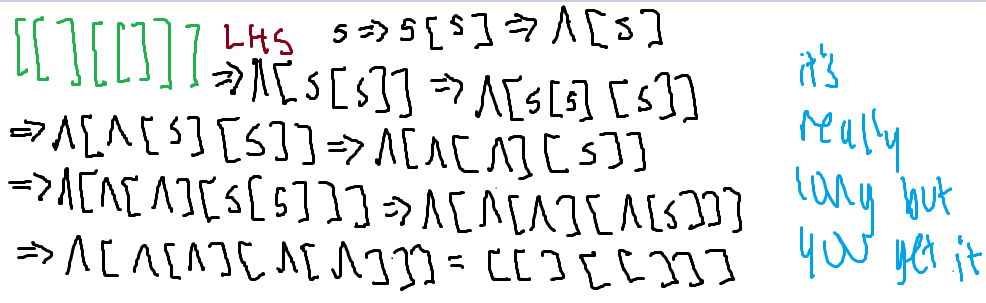 [[][[]]] LHS s⇒s[s]⇒Λ[s]
⇒Λ[s[s]] ⇒Λ[s[s][s]]
⇒Λ[Λ[s][s]]⇒Λ[Λ[Λ][s]]
⇒Λ[Λ[Λ][s[s]]]⇒Λ[Λ[Λ][Λ[s]]]
⇒Λ[Λ[Λ][Λ[Λ]]]=[[][[]]]
it's
really
long but
you get it